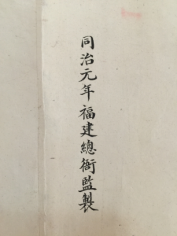 同治元年福建總衙監製